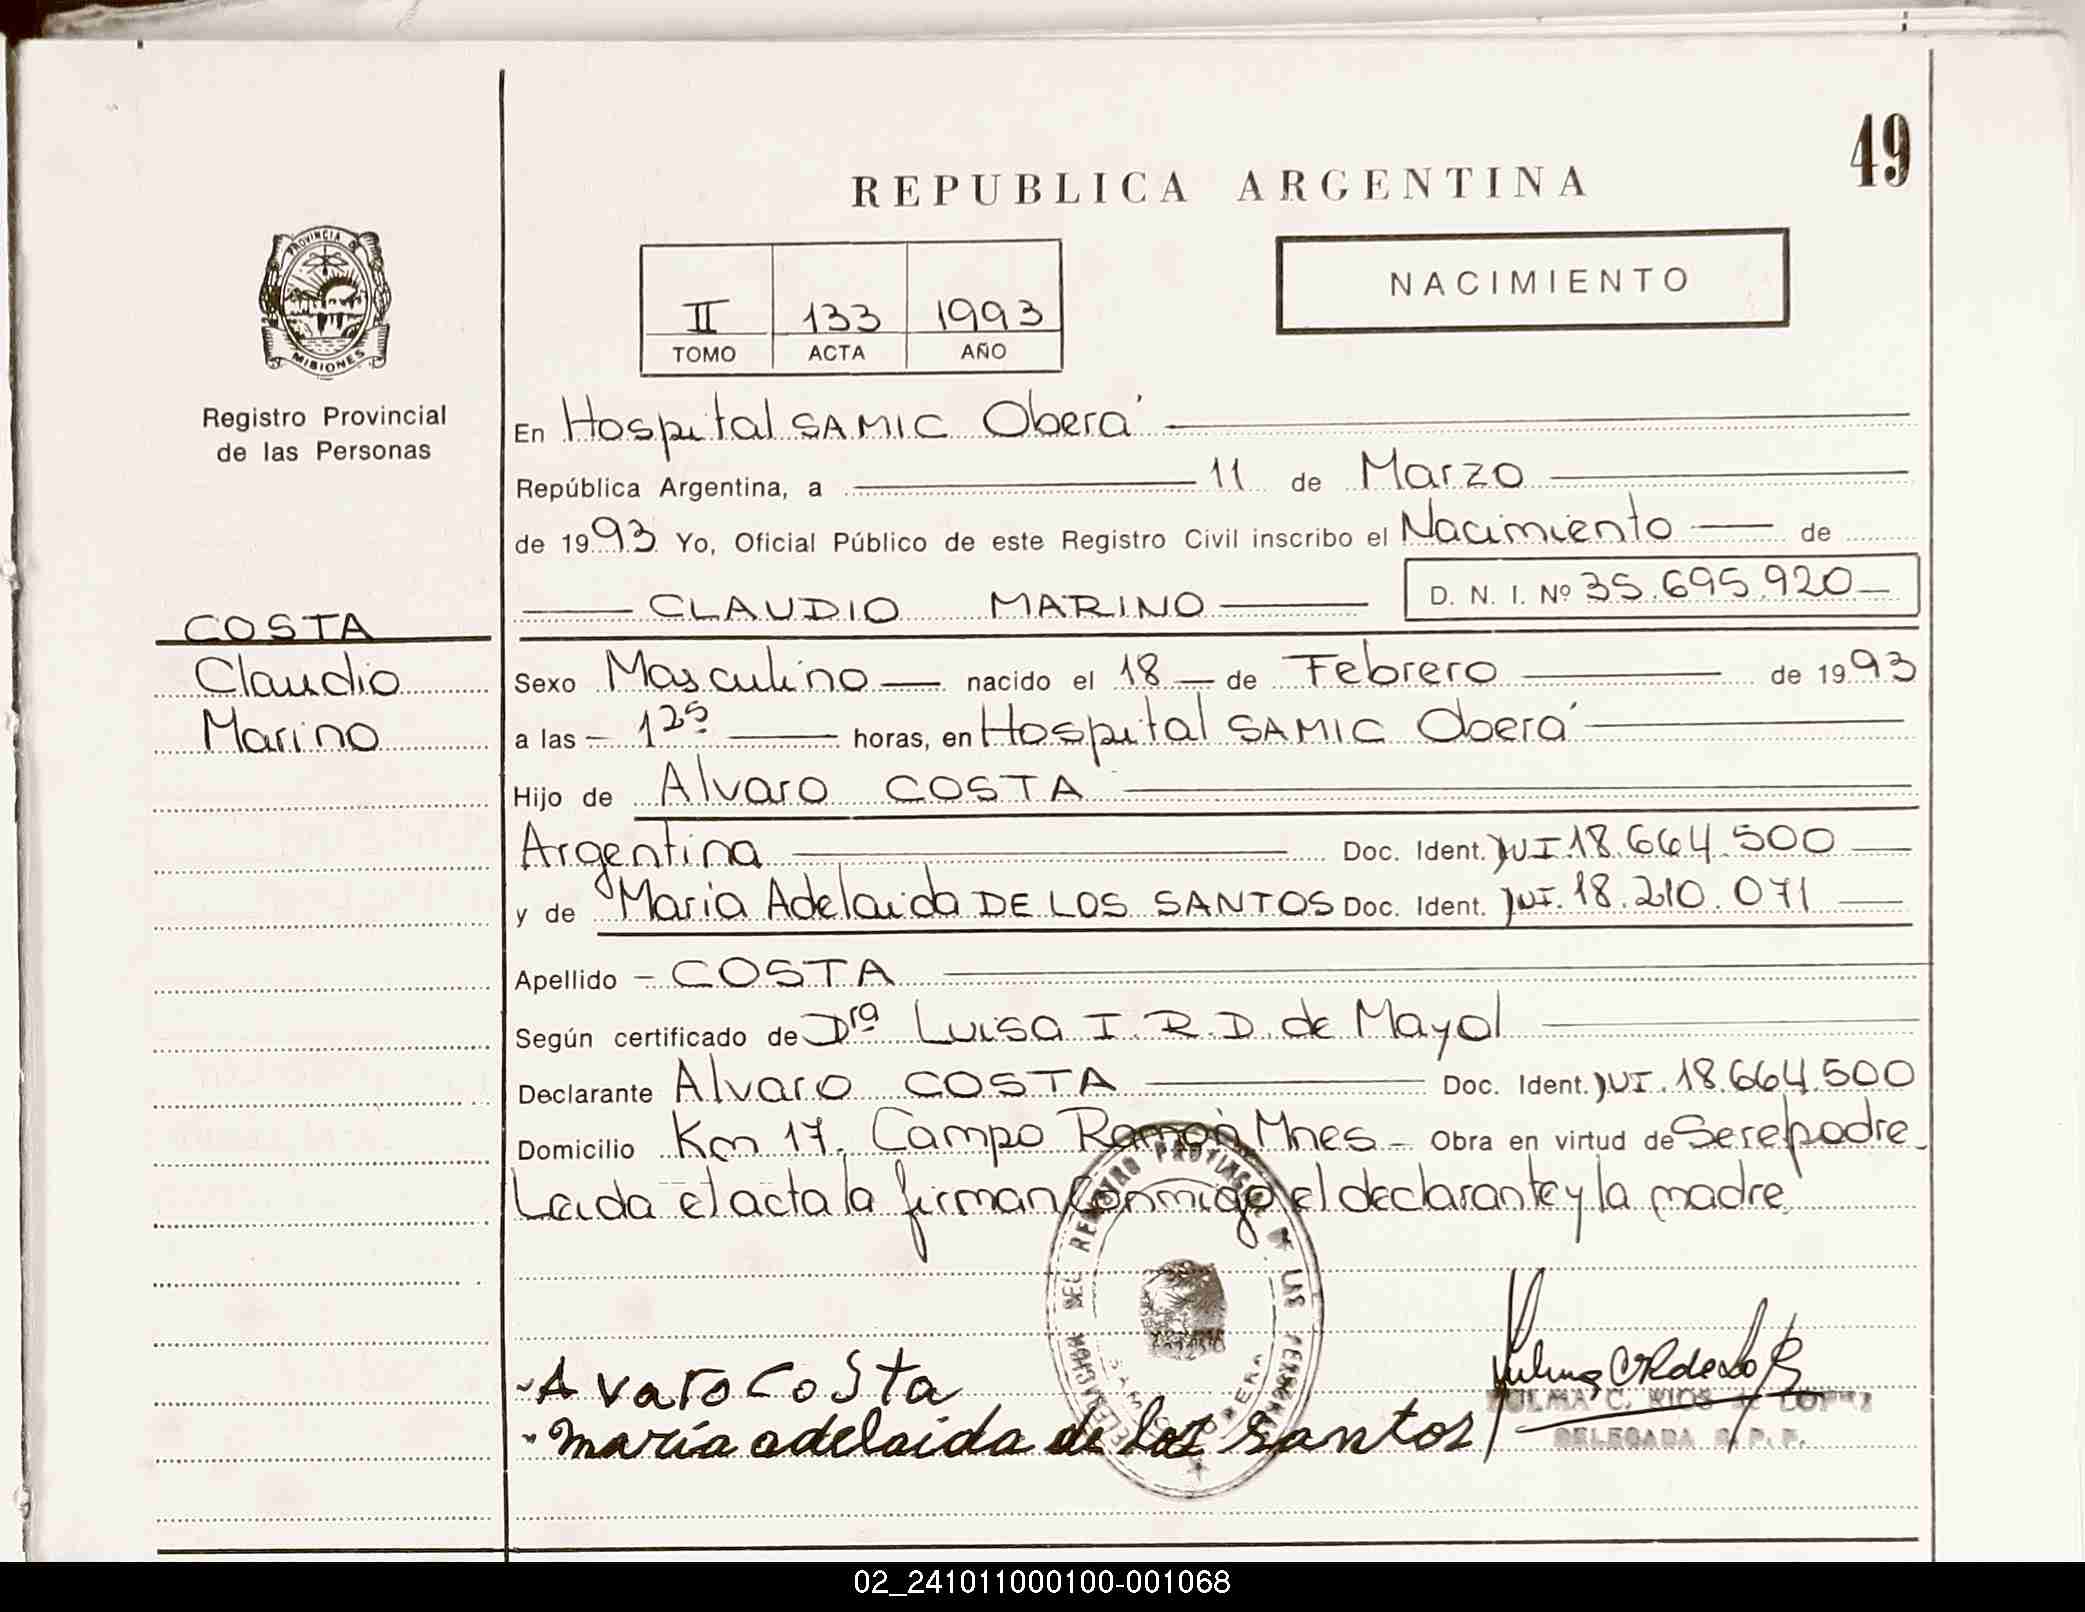 49
REPUBLICA ARGENTINA
NACIMIENTO
II 133 1993
TOMO ACTA AÑO
PROVINCIA DE
MISIONES
Registro Provincial
de las Personas
En Hospital SAMIC Oberá
República Argentina, a 11 de Marzo
de 1993 Yo, Oficial Público de este Registro Civil inscribo el Nacimiento de
CLAUDIO MARINO D. N. I. Nº 35.695.920
COSTA
Claudio
Marino
Sexo Masculino nacido el 18 de Febrero de 1993
a las horas, en Hospital SAMIC Oberá
Hijo de Alvaro COSTA
Argentina Doc. Ident. 18.664.500
y de Maria Adelaida DE LOS SANTOS Doc. Ident. 18.210.071
Apellido COSTA
Según certificado de Dra Luisa I.R.D. de Mayol
Declarante Alvaro COSTA Doc. Ident. 18.664.500
Domicilio Km 17. Campo Ramón Mnes Obra en virtud de Ser el padre
Leida el acta la firman conmigo el declarante y la madre
DEL REGISTRO PROVINCIAL DE LAS PERSONAS
Avaro Costa
maría adelaida de los santos
ZULMA C. RIOS de LOPEZ
DELEGADA
02_241011000100-001068